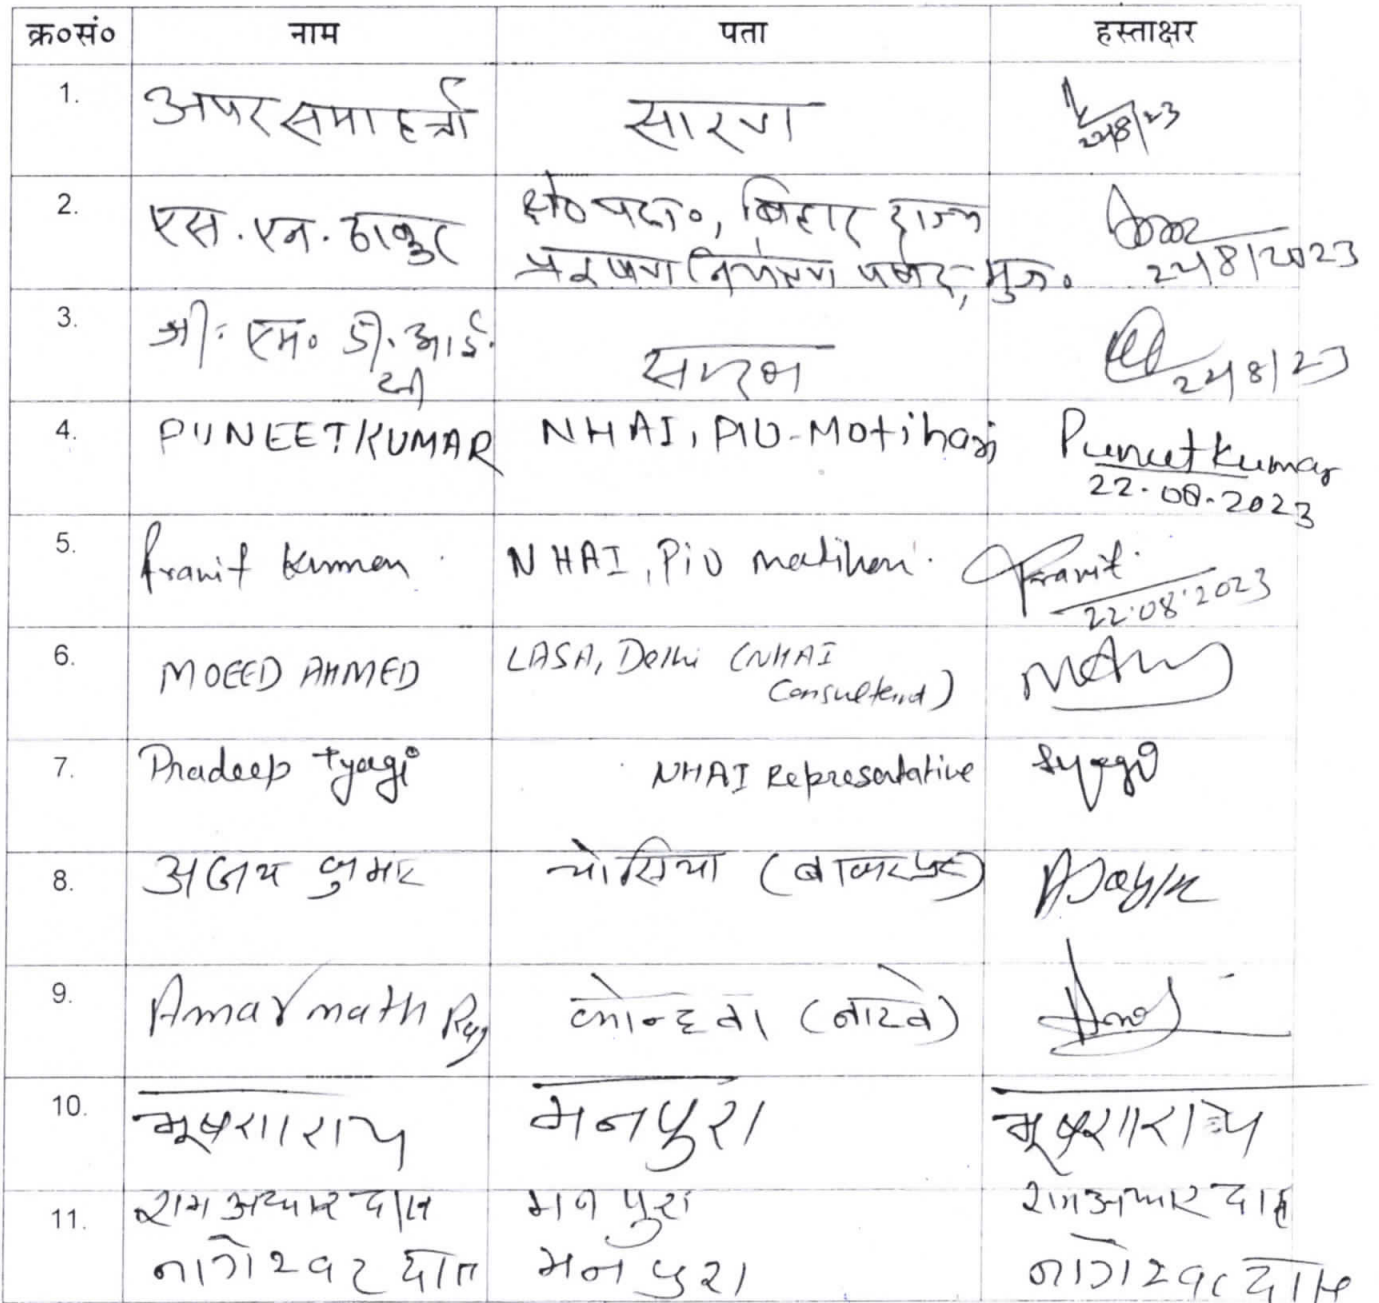 क्र०सं० नाम पता हस्ताक्षर
1. अपर समाहर्त्ता सारण 22/8/23
2. एस. एन. ठाकुर क्षे० पदा०, बिहार राज्य
प्रदूषण नियंत्रण पर्षद, मुज. 22/8/2023
3. श्री. एम० डी. आई.
सारण 22/8/23
4. PUNEET KUMAR NHAI, PIU-Motihari Puneet Kumar
22.08.2023
5. Pranit Kumar NHAI, PIU Motihari. Pranit.
22.08.2023
6. MOEED AHMED LASA, Delhi (NHAI
Consultant)
7. Pradeep Tyagi NHAI Representative Tyagi
8. अजय कुमार
9. Amarnath Ray कोन्हवा
10. भूषण राय मनपुरा भूषण राय
11. राम अवतार दास मनपुरा राम अवतार दास
नागेश्वर दास मनपुरा नागेश्वर दास